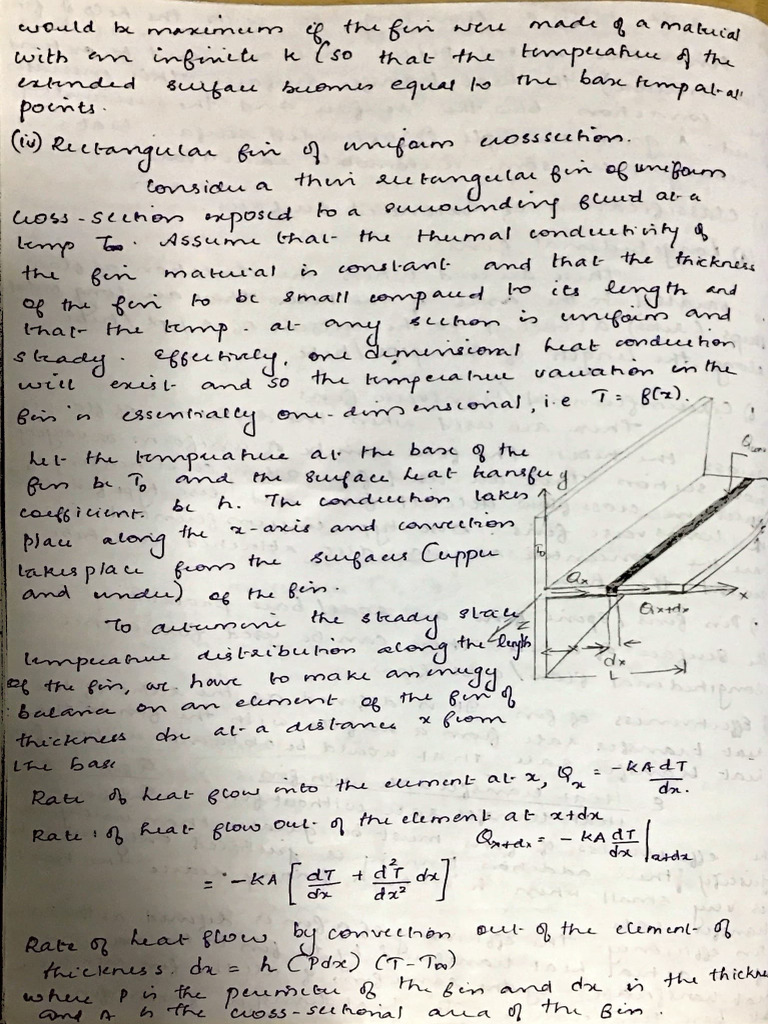 would be maximum if the fin were made of a material
with an infinite k (so that the temperature of the
extended surface becomes equal to the base temp at all
points.
(iv) Rectangular fin of uniform crosssection.
Consider a thin rectangular fin of uniform
cross-section exposed to a surrounding fluid at a
temp T∞. Assume that the thermal conductivity of
the fin material is constant and that the thickness
of the fin to be small compared to its length and
that the temp. at any section is uniform and
steady. Effectively, one dimensional heat conduction
will exist and so the temperature variation in the
fin is essentially one-dimensional, i.e T = f(x).
Let the temperature at the base of the
fin be T₀ and the surface heat transfer
coefficient be h. The conduction takes
place along the x-axis and convection
takes place from the surfaces (upper
and under) of the fin.
To determine the steady state
temperature distribution along the length
of the fin, we have to make an energy
balance on an element of the fin of
thickness dx at a distance x from
the base
y
T₀
Qx
Qx+dx
x
z
x
dx
L
Rate of heat flow into the element at x, Qx = -kA dT/dx.
Rate of heat flow out of the element at x+dx
Qx+dx = -kA dT/dx |x+dx
= -kA [dT/dx + d²T/dx² dx]
Rate of heat flow by convection out of the element of
thickness dx = h (Pdx) (T-T∞)
where P is the perimeter of the fin and dx is the thickne
and A is the cross-sectional area of the fin.